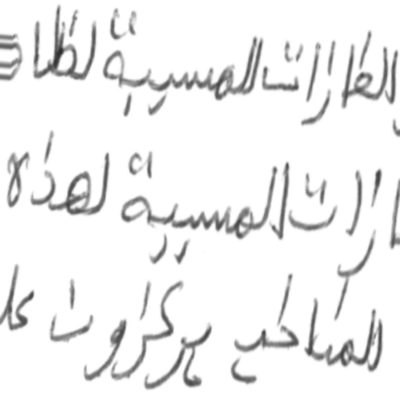 الغازات المسببة لظا
ازات المسببة لهذه
المناطق يركزون عل